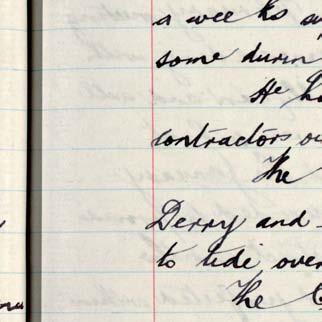 a weeks
some durin
He h
contractors ou
The
Derry and
to tide over
The